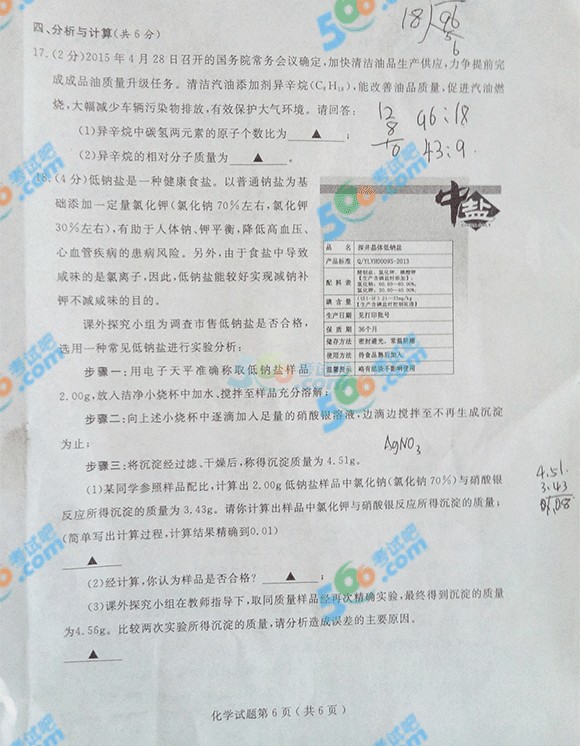 四、分析与计算(共6分)
17.(2分)2015年4月28日召开的国务院常务会议确定,加快清洁油品生产供应,力争提前完
成成品油质量升级任务。清洁汽油添加剂异辛烷(C₈H₁₈),能改善油品质量,促进汽油燃
烧,大幅减少车辆污染物排放,有效保护大气环境。请回答:
(1)异辛烷中碳氢两元素的原子个数比为 ▲ ;
(2)异辛烷的相对分子质量为 ▲ 。
18
96
96:18
43:9.
18.(4分)低钠盐是一种健康食盐。以普通钠盐为基
础添加一定量氯化钾(氯化钠70%左右,氯化钾
30%左右),有助于人体钠、钾平衡,降低高血压、
心血管疾病的患病风险。另外,由于食盐中导致
咸味的是氯离子,因此,低钠盐能较好实现减钠补
钾不减咸味的目的。
课外探究小组为调查市售低钠盐是否合格,
选用一种常见低钠盐进行实验分析:
步骤一:用电子天平准确称取低钠盐样品
2.00g,放入洁净小烧杯中加水、搅拌至样品充分溶解;
中盐
品 名 深井晶体低钠盐
产品标准 Q/YLYH0009S-2013
配料表
碘含量
生产日期 见打印批号
保质期 36个月
储存方法 密封避光、常温防潮
使用方法 待食品熟后加入
温馨提示 略有结块不影响使用
步骤二:向上述小烧杯中逐滴加入足量的硝酸银溶液,边滴边搅拌至不再生成沉淀
为止;
AgNO₃
步骤三:将沉淀经过滤、干燥后,称得沉淀质量为4.51g。
(1)某同学参照样品配比,计算出2.00g低钠盐样品中氯化钠(氯化钠70%)与硝酸银
反应所得沉淀的质量为3.43g。请你计算出样品中氯化钾与硝酸银反应所得沉淀的质量;
(简单写出计算过程,计算结果精确到0.01)
▲
4.51
3.43
(2)经计算,你认为样品是否合格? ▲ ;
(3)课外探究小组在教师指导下,取同质量样品经再次精确实验,最终得到沉淀的质量
为4.56g。比较两次实验所得沉淀的质量,请分析造成误差的主要原因。
▲
化学试题第6页(共6页)
566考试吧.com